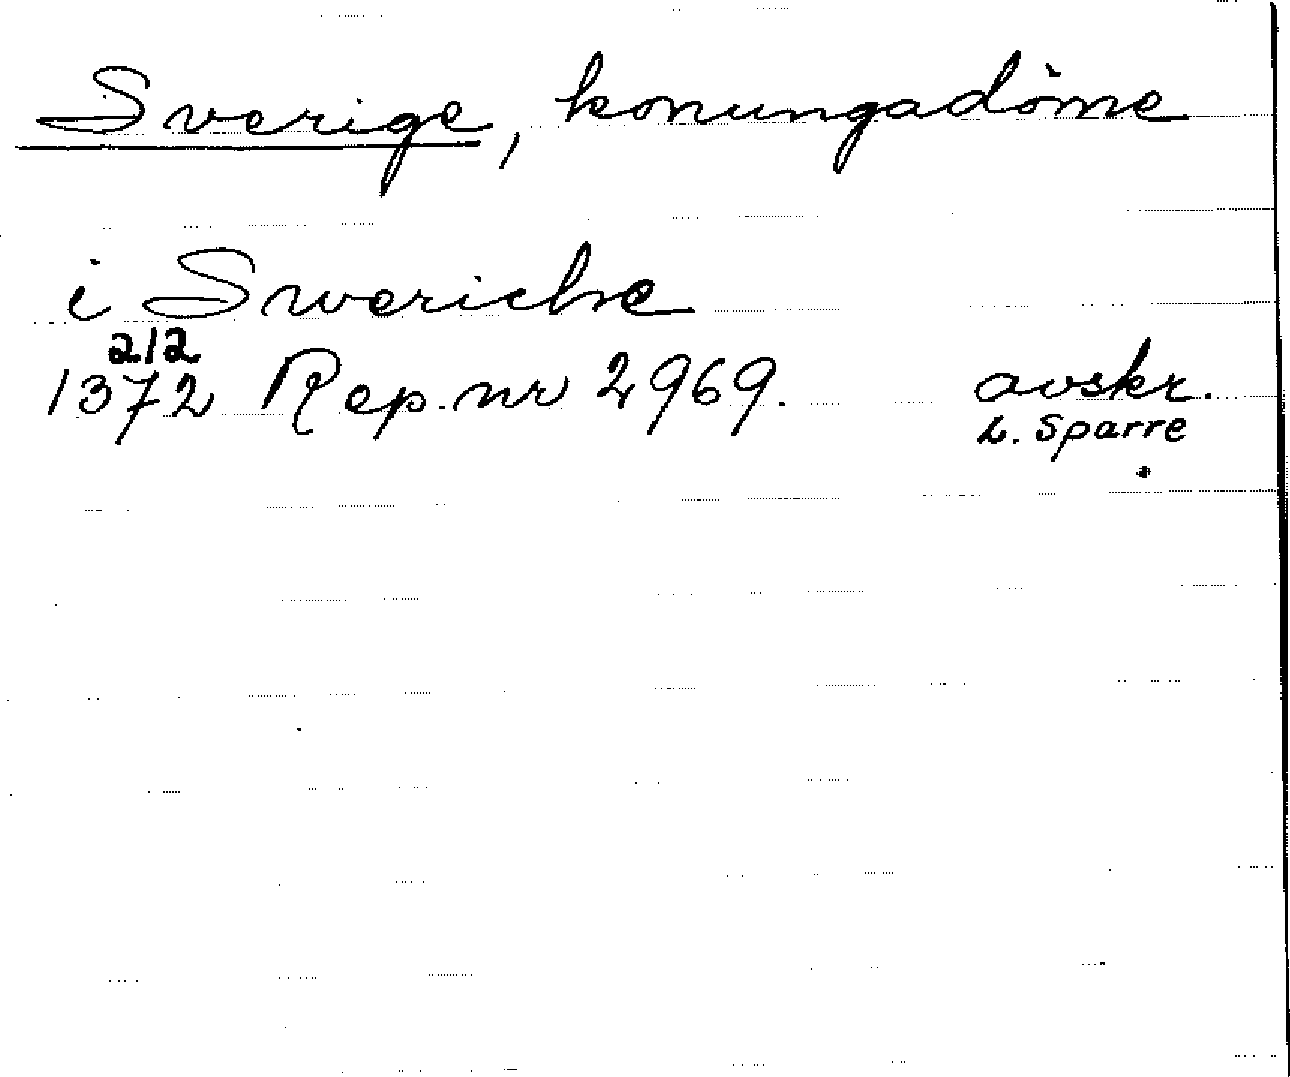 Sverige, konungadöme
i Swerichе
2/2
1372 Rep. nr 2969. avskr.
L. Sparre